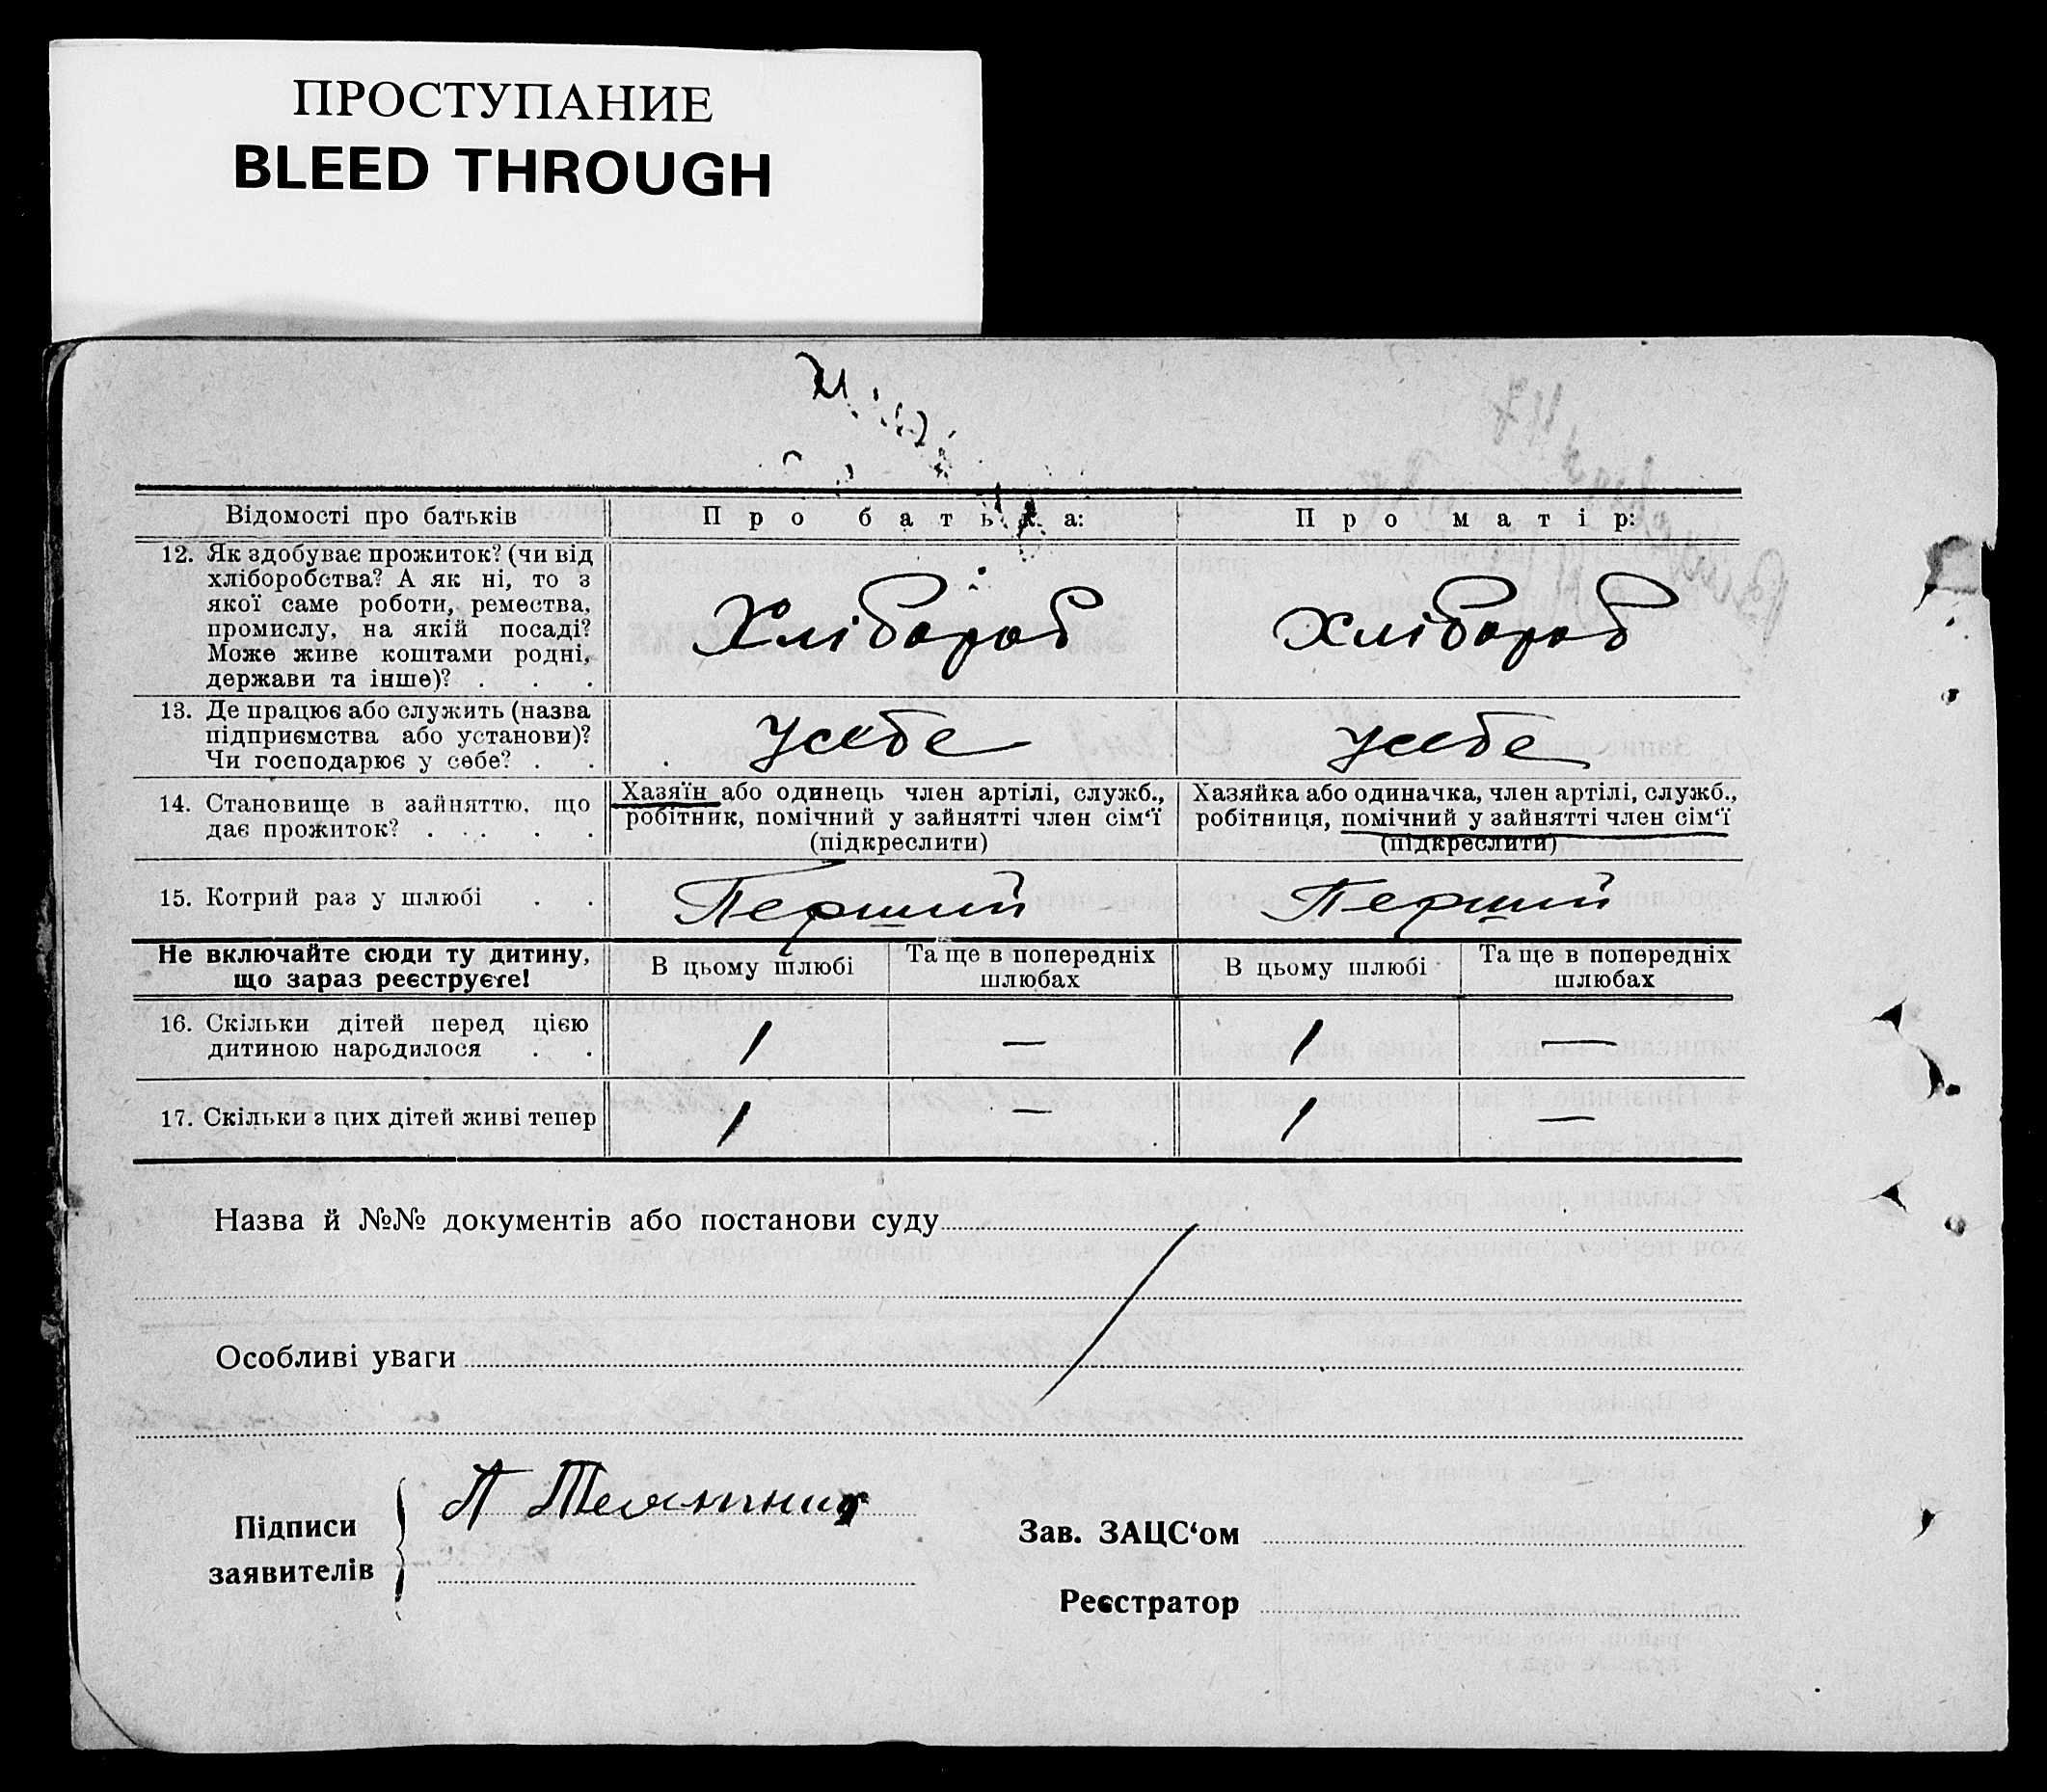 ПРОСТУПАНИЕ
BLEED THROUGH
Відомості про батьків
Про батька:
Про матір:
12. Як здобуває прожиток? (чи від
хліборобства? А як ні, то з
якої саме роботи, ремества,
промислу, на якій посаді?
Може живе коштами родні,
держави та інше)? . . .
Хлібороб
Хлібороб
13. Де працює або служить (назва
підприємства або установи)?
Чи господарює у себе? . .
У себе
У себе
14. Становище в зайняттю, що
дає прожиток? . . . .
Хазяїн або одинець член артілі, служб.,
робітник, помічний у зайнятті член сім‘ї
(підкреслити)
Хазяйка або одиначка, член артілі, служб.,
робітниця, помічний у зайнятті член сім‘ї
(підкреслити)
15. Котрий раз у шлюбі . .
Перший
Перший
Не включайте сюди ту дитину,
що зараз реєструєте!
В цьому шлюбі
Та ще в попередніх
шлюбах
В цьому шлюбі
Та ще в попередніх
шлюбах
16. Скільки дітей перед цією
дитиною народилося . .
1
—
1
—
17. Скільки з цих дітей живі тепер
1
—
1
—
Назва й №№ документів або постанови суду
Особливі уваги
Підписи
заявителів
П Телятник
Зав. ЗАЦС‘ом
Реєстратор